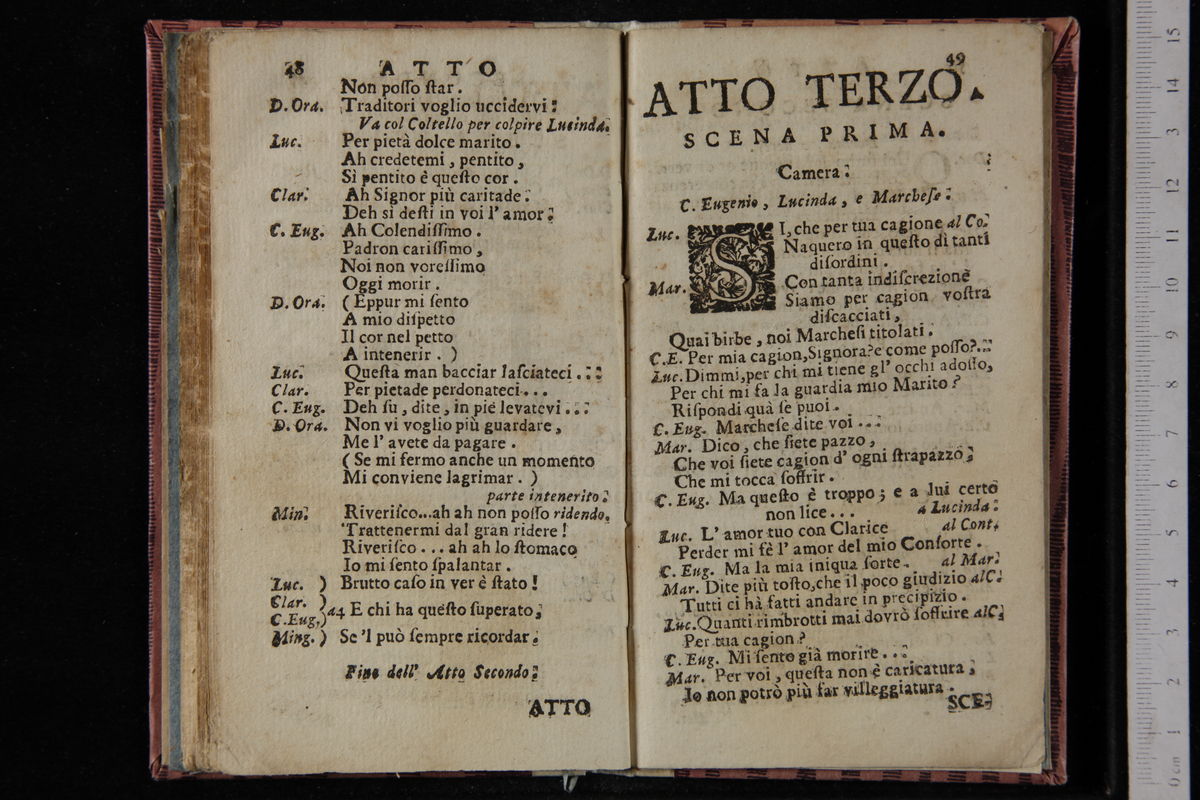 48 ATTO
Non posso star.
D. Ora. Traditori voglio uccidervi:
Va col Coltello per colpire Lucinda.
Luc. Per pietà dolce marito.
Ah credetemi, pentito,
Sì pentito è questo cor.
Clar. Ah Signor più caritade:
Deh si desti in voi l'amor:
C. Eug. Ah Colendissimo.
Padron carissimo,
Noi non voressimo
Oggi morir.
D. Ora. (Eppur mi sento
A mio dispetto
Il cor nel petto
A intenerir.)
Luc. Questa man bacciar lasciateci...
Clar. Per pietade perdonateci...
C. Eug. Deh su, dite, in piè levatevi...
D. Ora. Non vi voglio più guardare,
Me l'avete da pagare.
(Se mi fermo anche un momento
Mi conviene lagrimar.)
parte intenerito.
Min. Riverisco...ah ah non posso ridendo.
Trattenermi dal gran ridere!
Riverisco... ah ah lo stomaco
Io mi sento spalantar.
Luc. ) Brutto caso in ver è stato!
Clar. )
C. Eug.) a4 E chi ha questo superato,
Ming. ) Se'l può sempre ricordar.
Fine dell' Atto Secondo.
ATTO
49
ATTO TERZO.
SCENA PRIMA.
Camera:
C. Eugenio, Lucinda, e Marchese:
Luc. SI, che per tua cagione al Co:
Naquero in questo dì tanti
disordini.
Mar. Con tanta indiscrezione
Siamo per cagion vostra
discacciati,
Quai birbe, noi Marchesi titolati.
C.E. Per mia cagion, Signora? e come posso?...
Luc. Dimmi, per chi mi tiene gl'occhi adosso,
Per chi mi fa la guardia mio Marito?
Rispondi quà se puoi.
C. Eug. Marchese dite voi...
Mar. Dico, che siete pazzo,
Che voi siete cagion d'ogni strapazzo,
Che mi tocca soffrir.
C. Eug. Ma questo è troppo; e a lui certo
non lice... a Lucinda:
Luc. L'amor tuo con Clarice al Cont.
Perder mi fè l'amor del mio Consorte.
C. Eug. Ma la mia iniqua sorte. al Mar:
Mar. Dite più tosto, che il poco giudizio al C:
Tutti ci hà fatti andare in precipizio.
Luc. Quanti rimbrotti mai dovrò soffrire al C:
Per tua cagion?
C. Eug. Mi sento già morire...
Mar. Per voi, questa non è caricatura,
Io non potrò più far villeggiatura.
SCE-